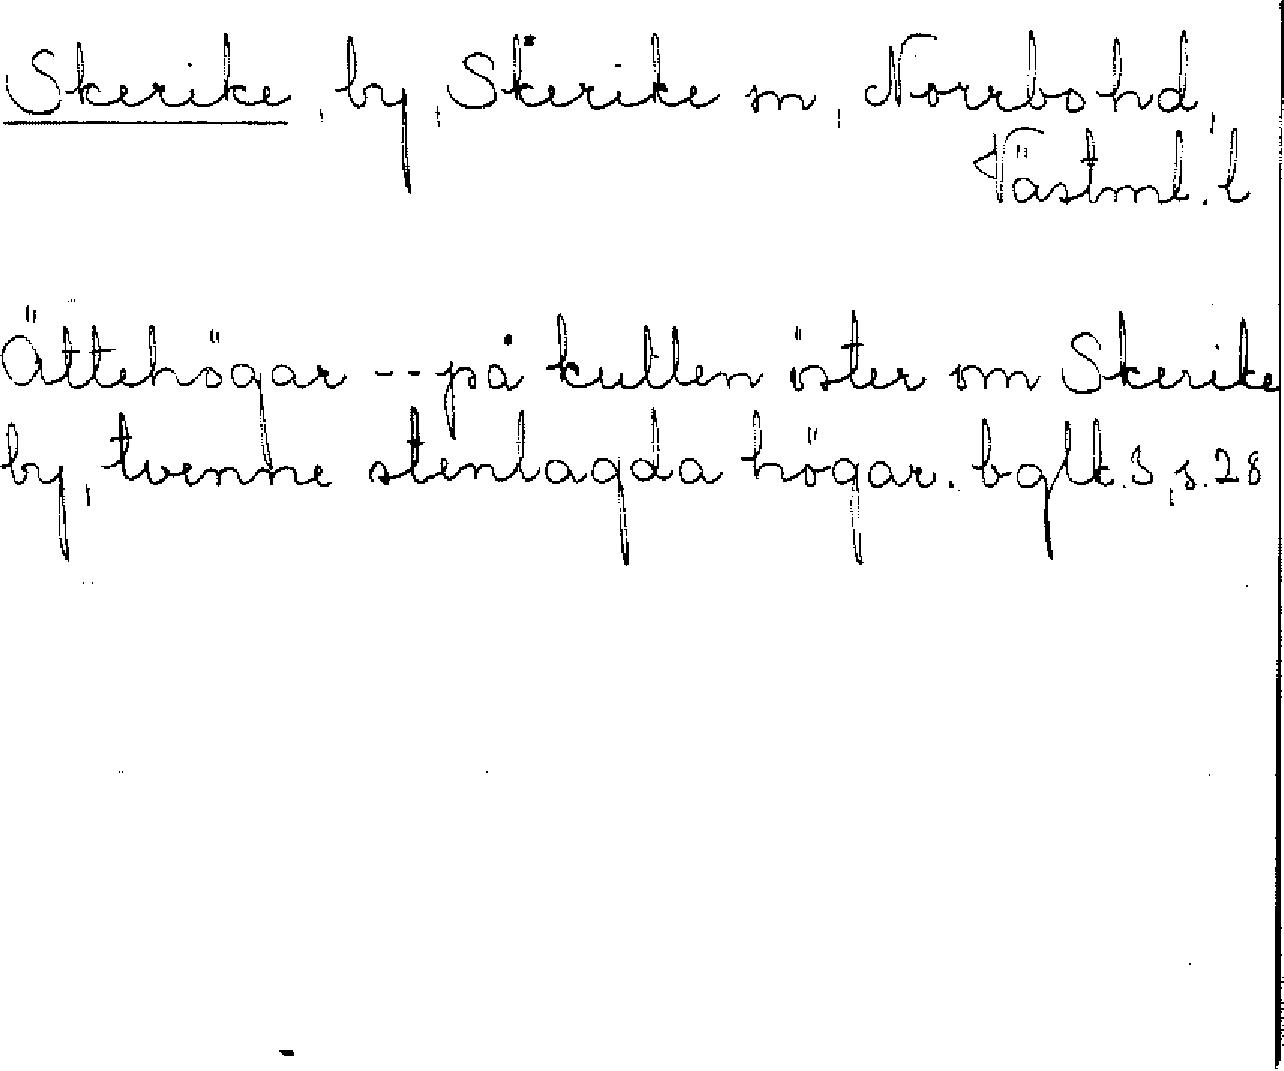 Skerike, by, Skerike sn, Norrbo hd,
Västml. l
Ättehögar -- på kullen öster om Skerike
by, tvenne stenlagda högar. bglk. 3, s. 28